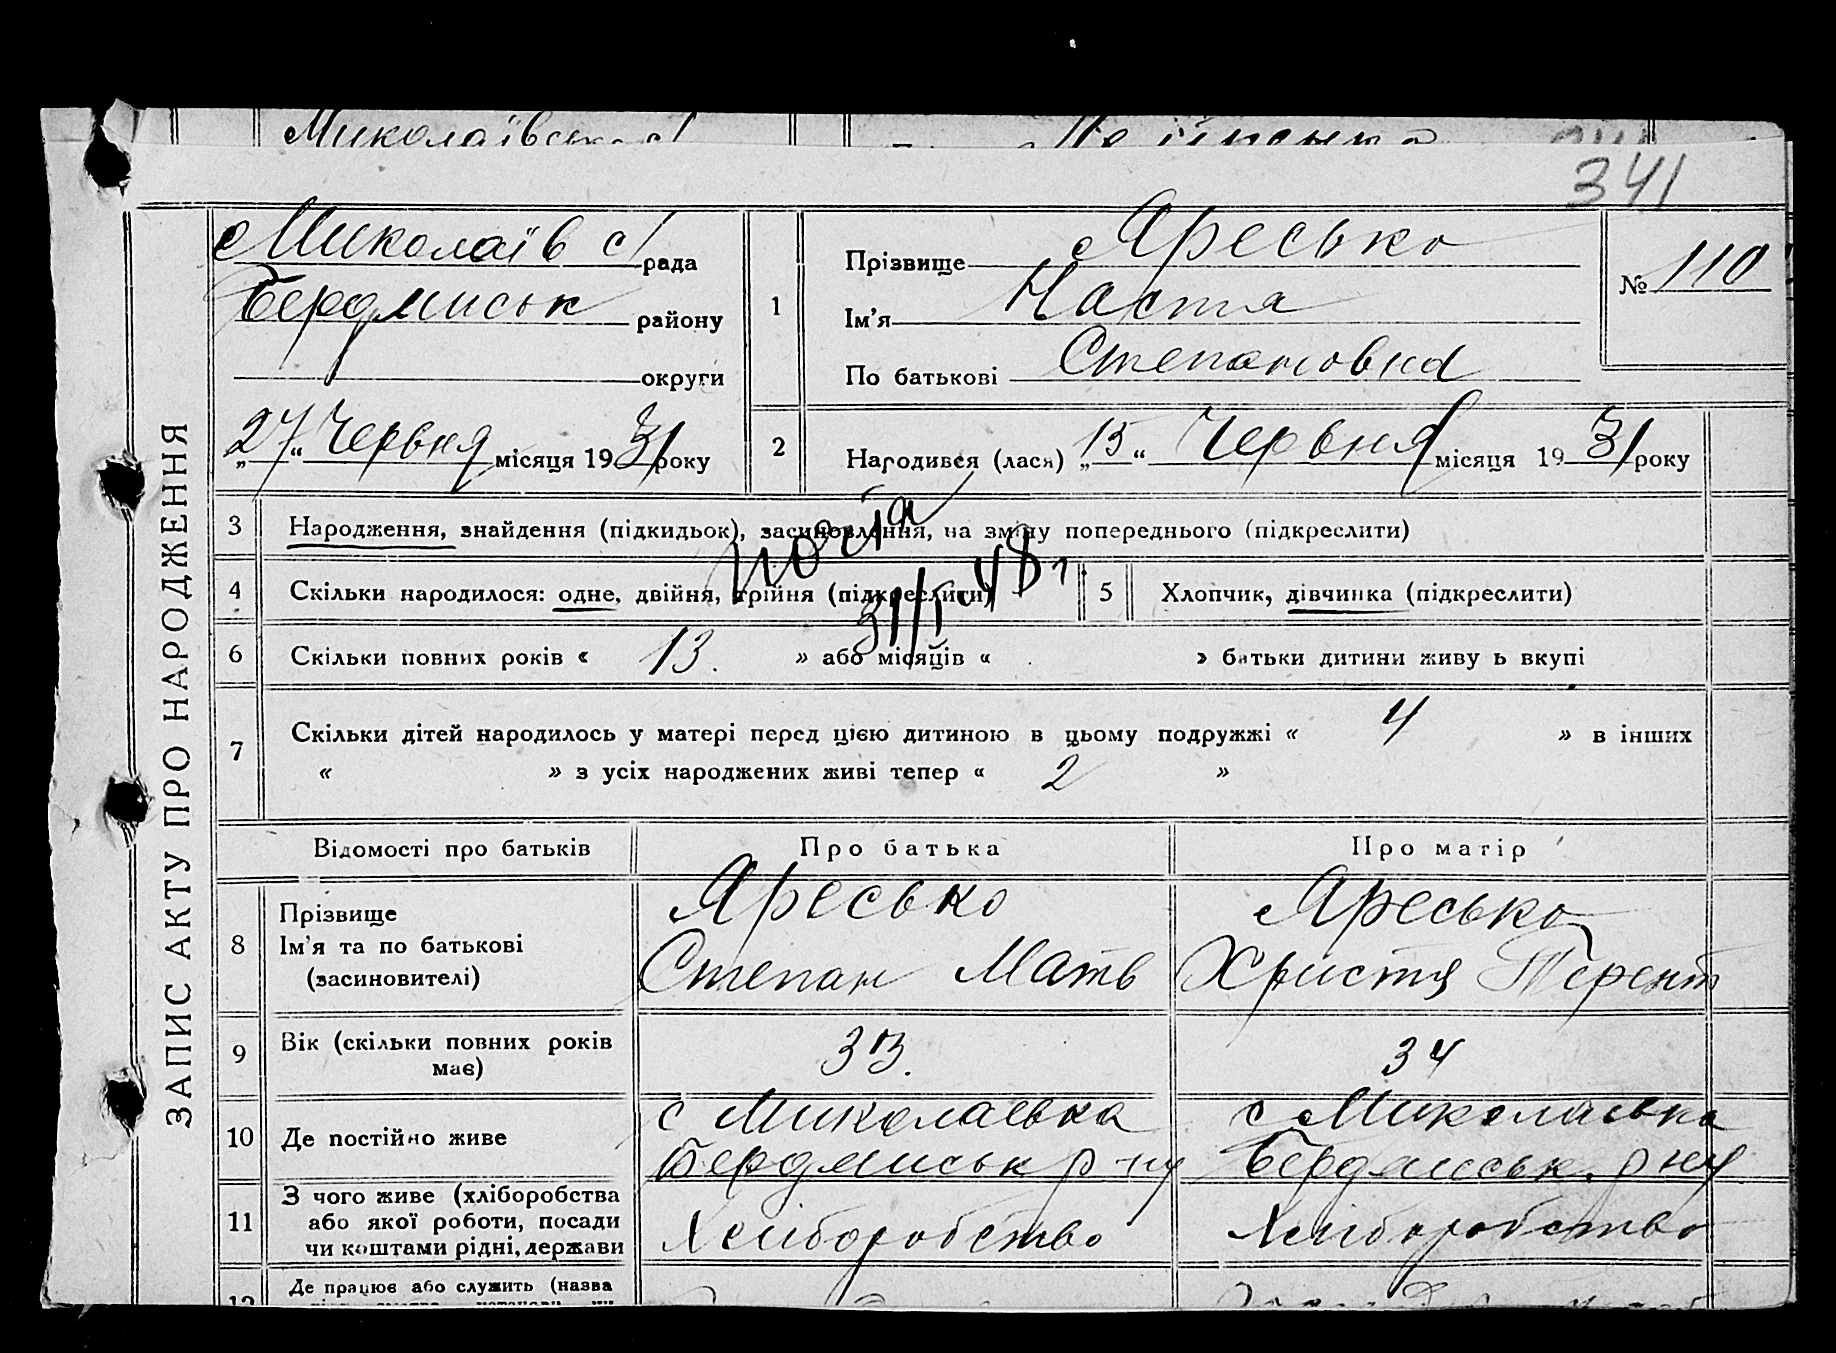 Миколаївська
341
с Миколаїв с/рада
Бердянськ району
округи
„27“ Червня місяця 1931 року
1
Прізвище Яресько
Ім’я Настя
По батькові Степановна
№ 110
2
Народився (лася) „15“ Червня місяця 1931 року
ЗАПИС АКТУ ПРО НАРОДЖЕННЯ
3 Народження, знайдення (підкидьок), засиновлення, на зміну попереднього (підкреслити)
копія
31/I 48 г.
4 Скільки народилося: одне, двійня, трійня (підкреслити)
5 Хлопчик, дівчинка (підкреслити)
6 Скільки повних років « 13. » або місяців « » батьки дитини живу ь вкупі
7 Скільки дітей народилось у матері перед цією дитиною в цьому подружжі « 4 » в інших
« » з усіх народжених живі тепер « 2 »
Відомості про батьків Про батька Про матір
8 Прізвище
Ім’я та по батькові
(засиновителі)
Яресько
Степан Матв
Яресько
Христя Терент
9 Вік (скільки повних років
має)
33.
34
10 Де постійно живе
с Миколаєвка
Бердянськ р-ну
с Миколаєвка
Бердянськ. р ну
11 З чого живе (хліборобства
або якої роботи, посади
чи коштами рідні, держави
Хліборобство
Хліборобство
12 Де працює або служить (назва